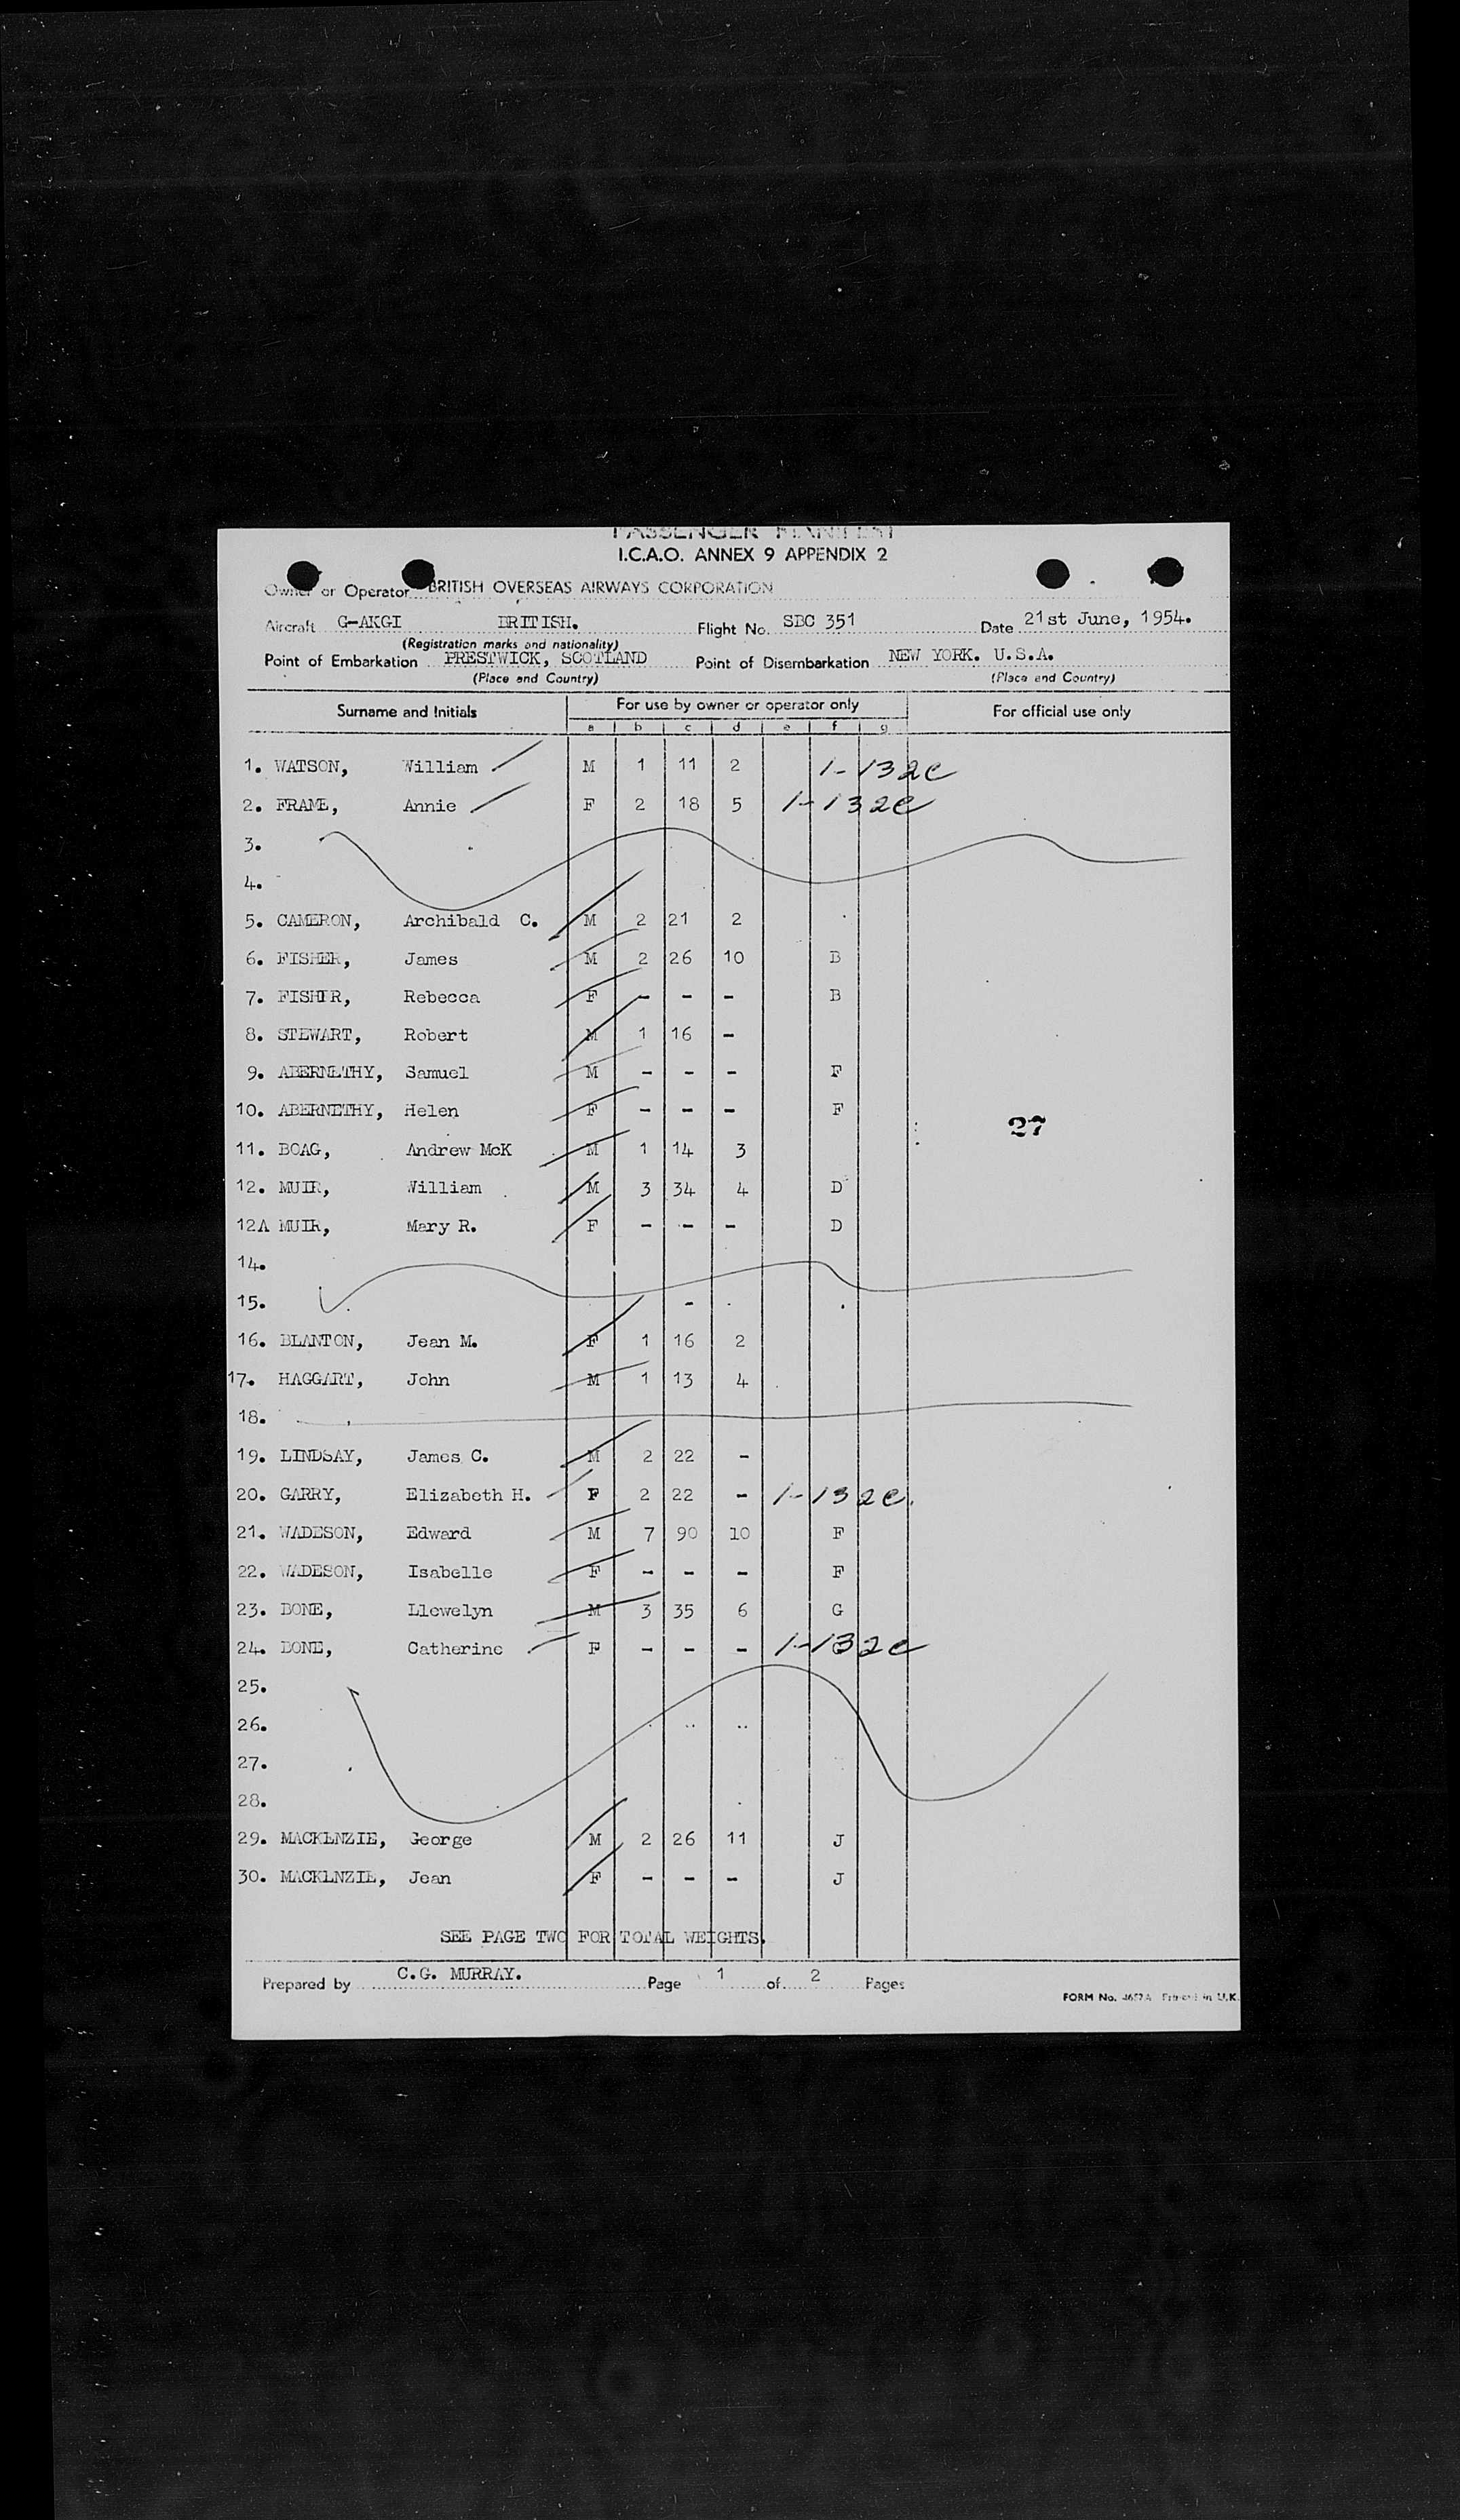 PASSENGER MANIFEST
I.C.A.O. ANNEX 9 APPENDIX 2
Owner or Operator BRITISH OVERSEAS AIRWAYS CORPORATION
Aircraft G-AKGI BRITISH. Flight No. SBC 351 Date 21st June, 1954.
(Registration marks and nationality)
Point of Embarkation PRESTWICK, SCOTLAND Point of Disembarkation NEW YORK. U.S.A.
(Place and Country) (Place and Country)
Surname and Initials For use by owner or operator only For official use only
a b c d e f g
1. WATSON, William M 1 11 2 1-132c
2. FRAME, Annie F 2 18 5 1-132c
3.
4.
5. CAMERON, Archibald C. M 2 21 2
6. FISHER, James M 2 26 10 B
7. FISHER, Rebecca F - - - B
8. STEWART, Robert M 1 16 -
9. ABERNETHY, Samuel M - - - F
10. ABERNETHY, Helen F - - - F
27
11. BOAG, Andrew McK M 1 14 3
12. MUIR, William M 3 34 4 D
12A MUIR, Mary R. F - - - D
14.
15. -
16. BLANTON, Jean M. F 1 16 2
17. HAGGART, John M 1 13 4
18.
19. LINDSAY, James C. M 2 22 -
20. GARRY, Elizabeth H. F 2 22 - 1-132c.
21. WADESON, Edward M 7 90 10 F
22. WADESON, Isabelle F - - - F
23. DONE, Llewelyn M 3 35 6 G
24. DONE, Catherine F - - - 1-132c
25.
26.
27.
28.
29. MACKENZIE, George M 2 26 11 J
30. MACKENZIE, Jean F - - - J
SEE PAGE TWO FOR TOTAL WEIGHTS.
Prepared by C.G. MURRAY. Page 1 of 2 Pages
FORM No. Printed in U.K.